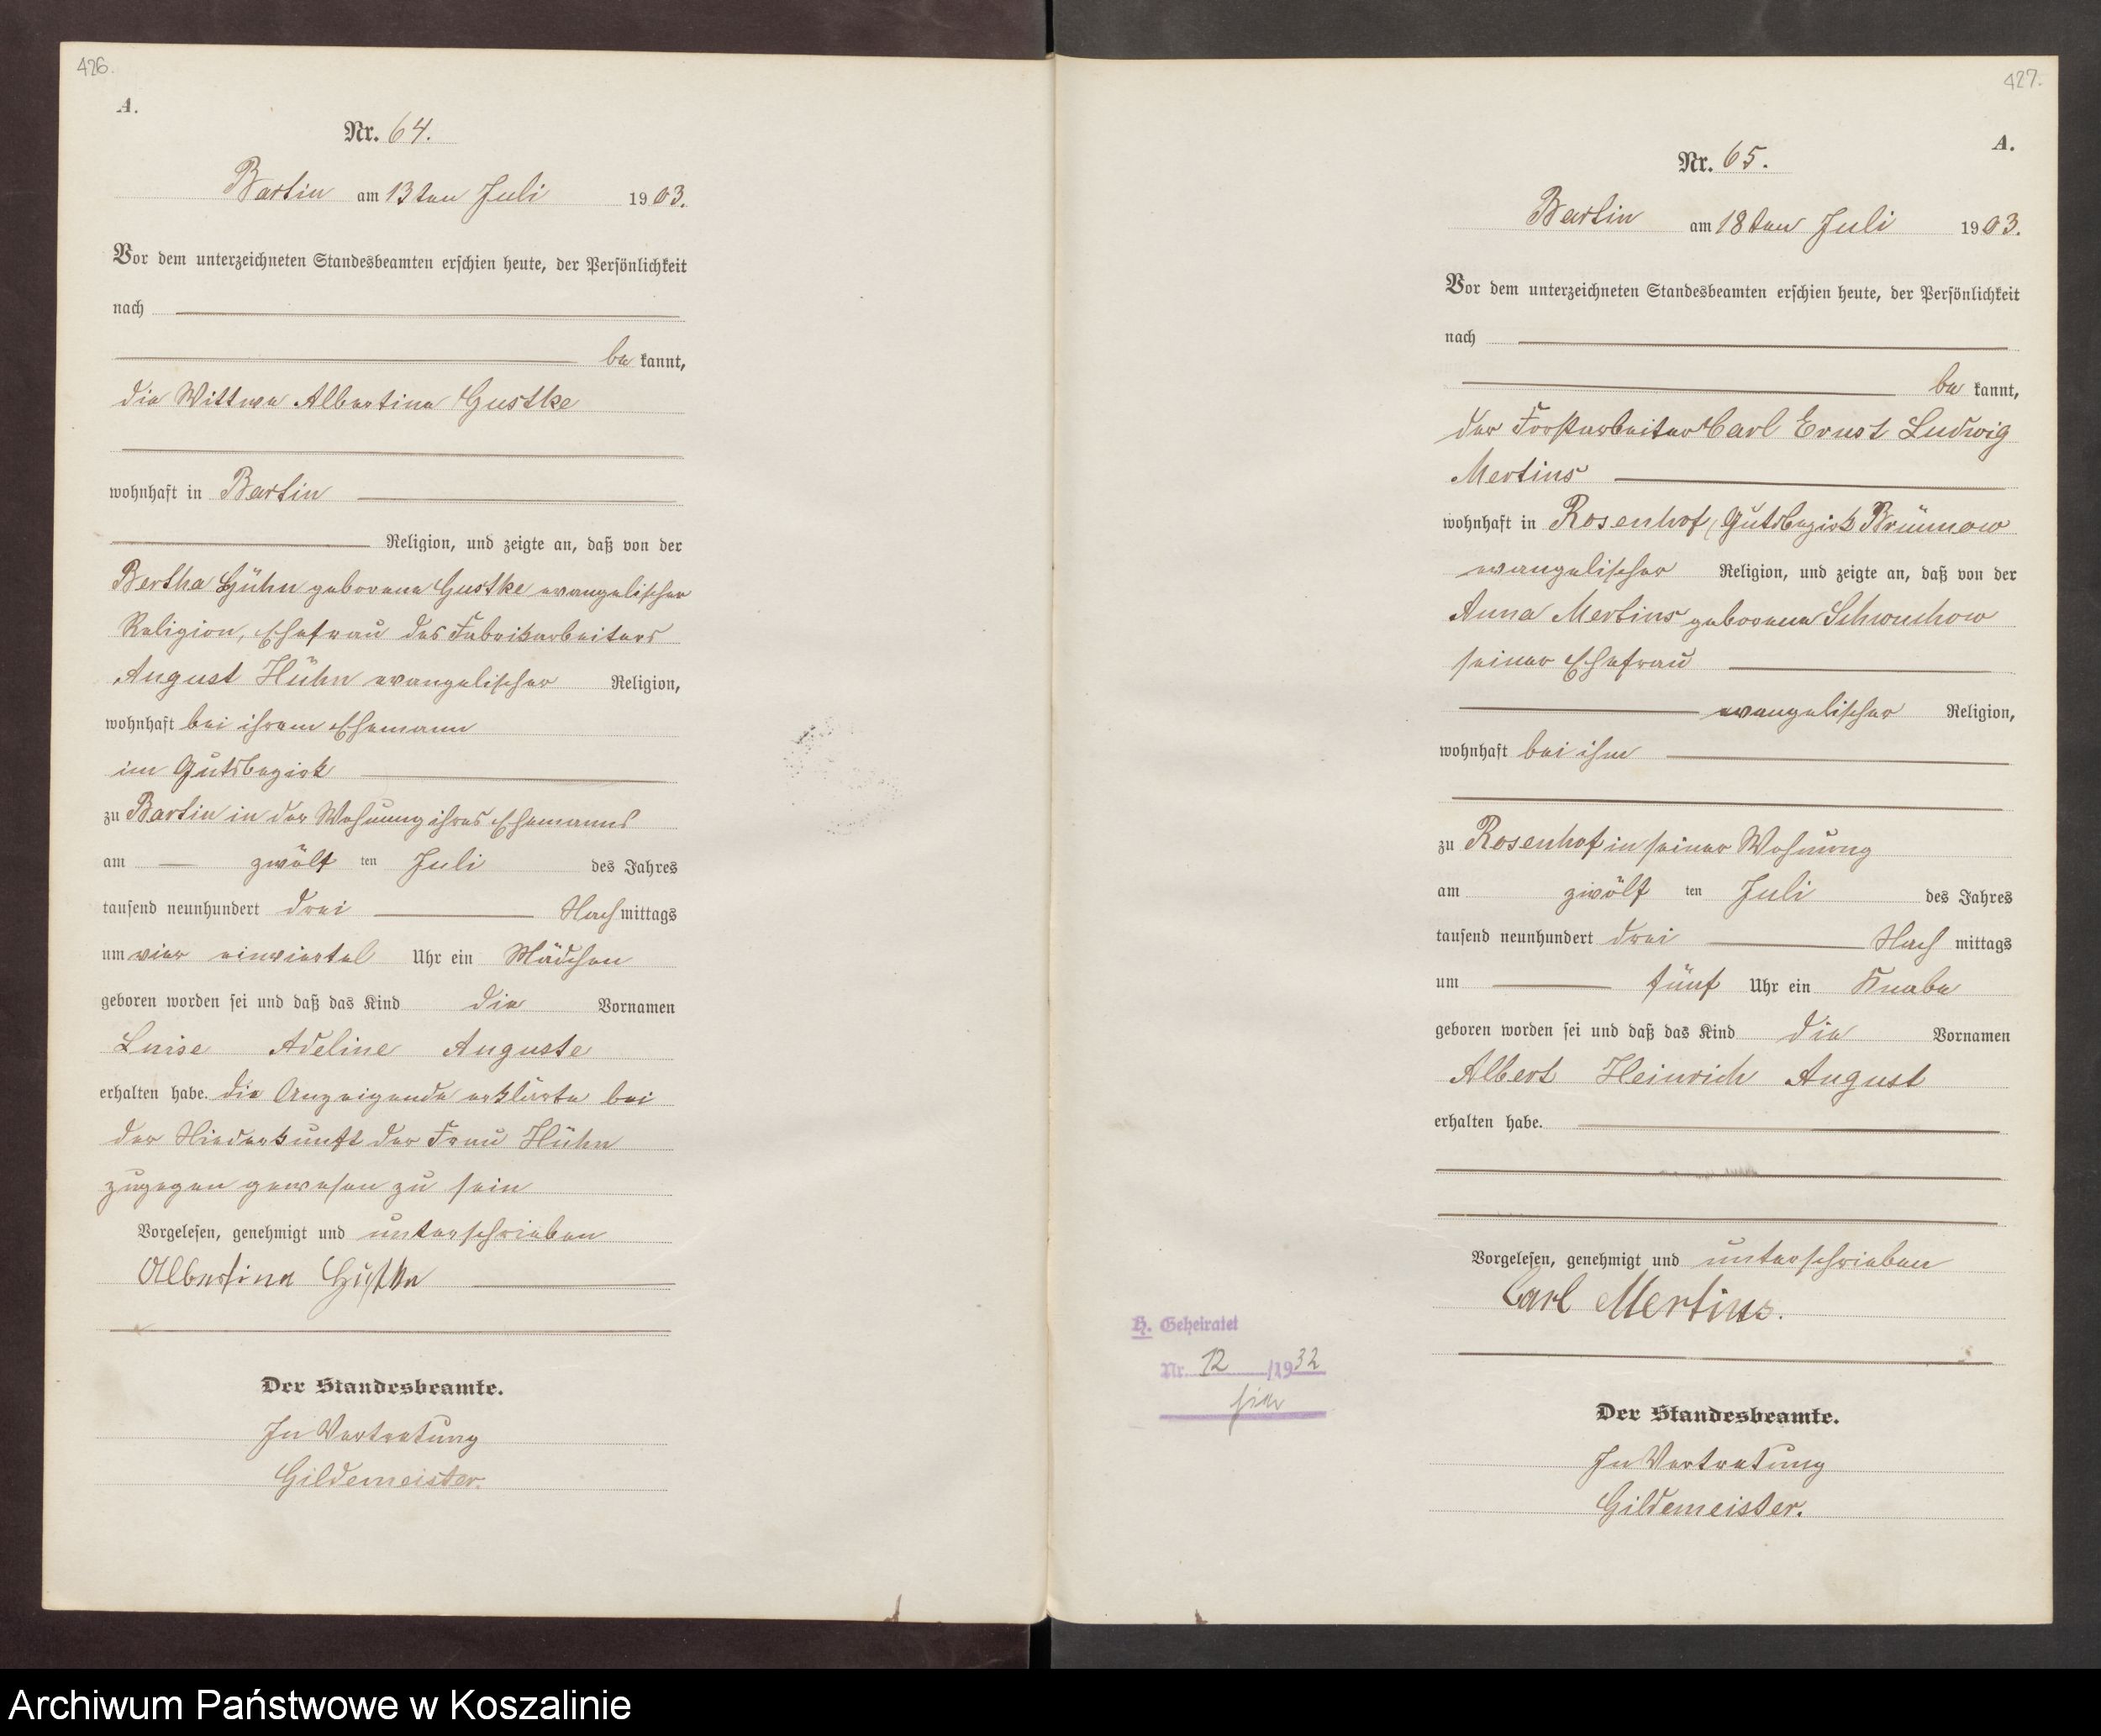 426.
A.
Nr. 64.
Bartin am 13ten Juli 1903.
Vor dem unterzeichneten Standesbeamten erschien heute, der Persönlichkeit
nach
be kannt,
die Wittwe Albertine Gustke
wohnhaft in Bartin
Religion, und zeigte an, daß von der
Bertha Hühn geborene Gustke evangelischer
Religion, Ehefrau des Fabrikarbeiters
August Hühn evangelischer Religion,
wohnhaft bei ihrem Ehemann
im Gutsbezirk
zu Bartin in der Wohnung ihres Ehemanns
am zwölf ten Juli des Jahres
tausend neunhundert drei Nach mittags
um vier einviertel Uhr ein Mädchen
geboren worden sei und daß das Kind die Vornamen
Luise Adeline Auguste
erhalten habe. Die Anzeigende erklärte bei
der Niederkunft der Frau Hühn
zugegen gewesen zu sein
Vorgelesen, genehmigt und unterschrieben
Albertine Gustke
Der Standesbeamte.
In Vertretung
Gildemeister.
427.
A.
Nr. 65.
Bartin am 18ten Juli 1903.
Vor dem unterzeichneten Standesbeamten erschien heute, der Persönlichkeit
nach
be kannt,
der Forstarbeiter Carl Ernst Ludwig
Mertins
wohnhaft in Rosenhof, Gutsbezirk Brünnow
evangelischer Religion, und zeigte an, daß von der
Anna Mertins geborene Schwuchow
seiner Ehefrau
evangelischer Religion,
wohnhaft bei ihm
zu Rosenhof in seiner Wohnung
am zwölf ten Juli des Jahres
tausend neunhundert drei Nach mittags
um fünf Uhr ein Knabe
geboren worden sei und daß das Kind die Vornamen
Albert Heinrich August
erhalten habe.
Vorgelesen, genehmigt und unterschrieben
Carl Mertins.
H. Geheiratet
Nr. 12 /1932
hier
Der Standesbeamte.
In Vertretung
Gildemeister.
Archiwum Państwowe w Koszalinie